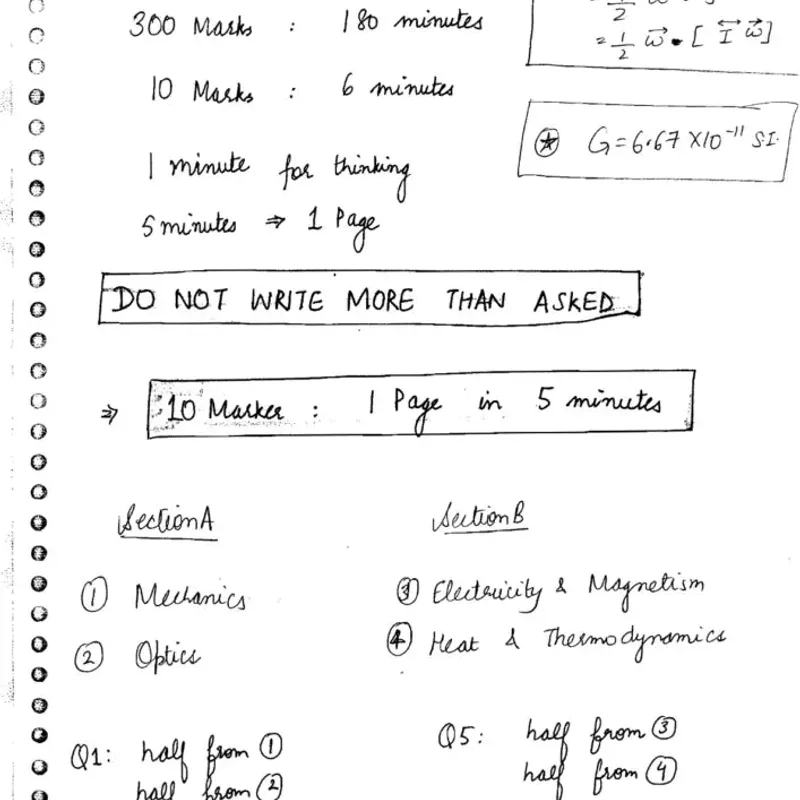 300 Marks : 180 minutes
10 Marks : 6 minutes
1 minute for thinking
5 minutes ⇒ 1 Page
= 1/2 ω⃗ • [ I⃡ ω⃗ ]
★ G = 6.67 × 10⁻¹¹ S.I.
DO NOT WRITE MORE THAN ASKED
⇒ 10 Marker : 1 Page in 5 minutes
Section A
① Mechanics
② Optics
Q1: half from ①
half from ②
Section B
③ Electricity & Magnetism
④ Heat & Thermodynamics
Q5: half from ③
half from ④